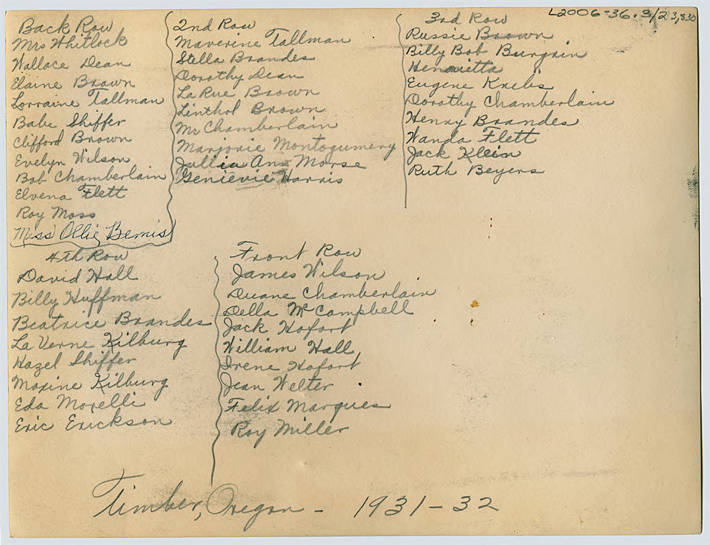 L2006-36.3/23,830
Back Row
Mrs Whitlock
Wallace Dean
Elaine Brown
Lorraine Tallman
Babe Shiffer
Clifford Brown
Evelyn Wilson
Bob Chamberlain
Elvena Flett
Roy Moss
Miss Ollie Bemis
2nd Row
Maverine Tallman
Stella Brandes
Dorothy Dean
La Rue Brown
Linthol Brown
Mr Chamberlain
Marjorie Montgomery
Jullia Ann Morse
Genievie Harris
3rd Row
Russie Brown
Billy Bob Burgoin
Henrietta
Eugene Krebs
Dorothy Chamberlain
Henry Brandes
Wanda Flett
Jack Klein
Ruth Beyers
4th Row
David Hall
Billy Huffman
Beatrice Brandes
La Verne Kilburg
Hazel Shiffer
Maxine Kilburg
Eda Morelli
Eric Erickson
Front Row
James Wilson
Duane Chamberlain
Della McCampbell
Jack Hofort
William Hall
Irene Hofort
Jean Welter
Felix Marques
Roy Miller
Timber, Oregon - 1931-32